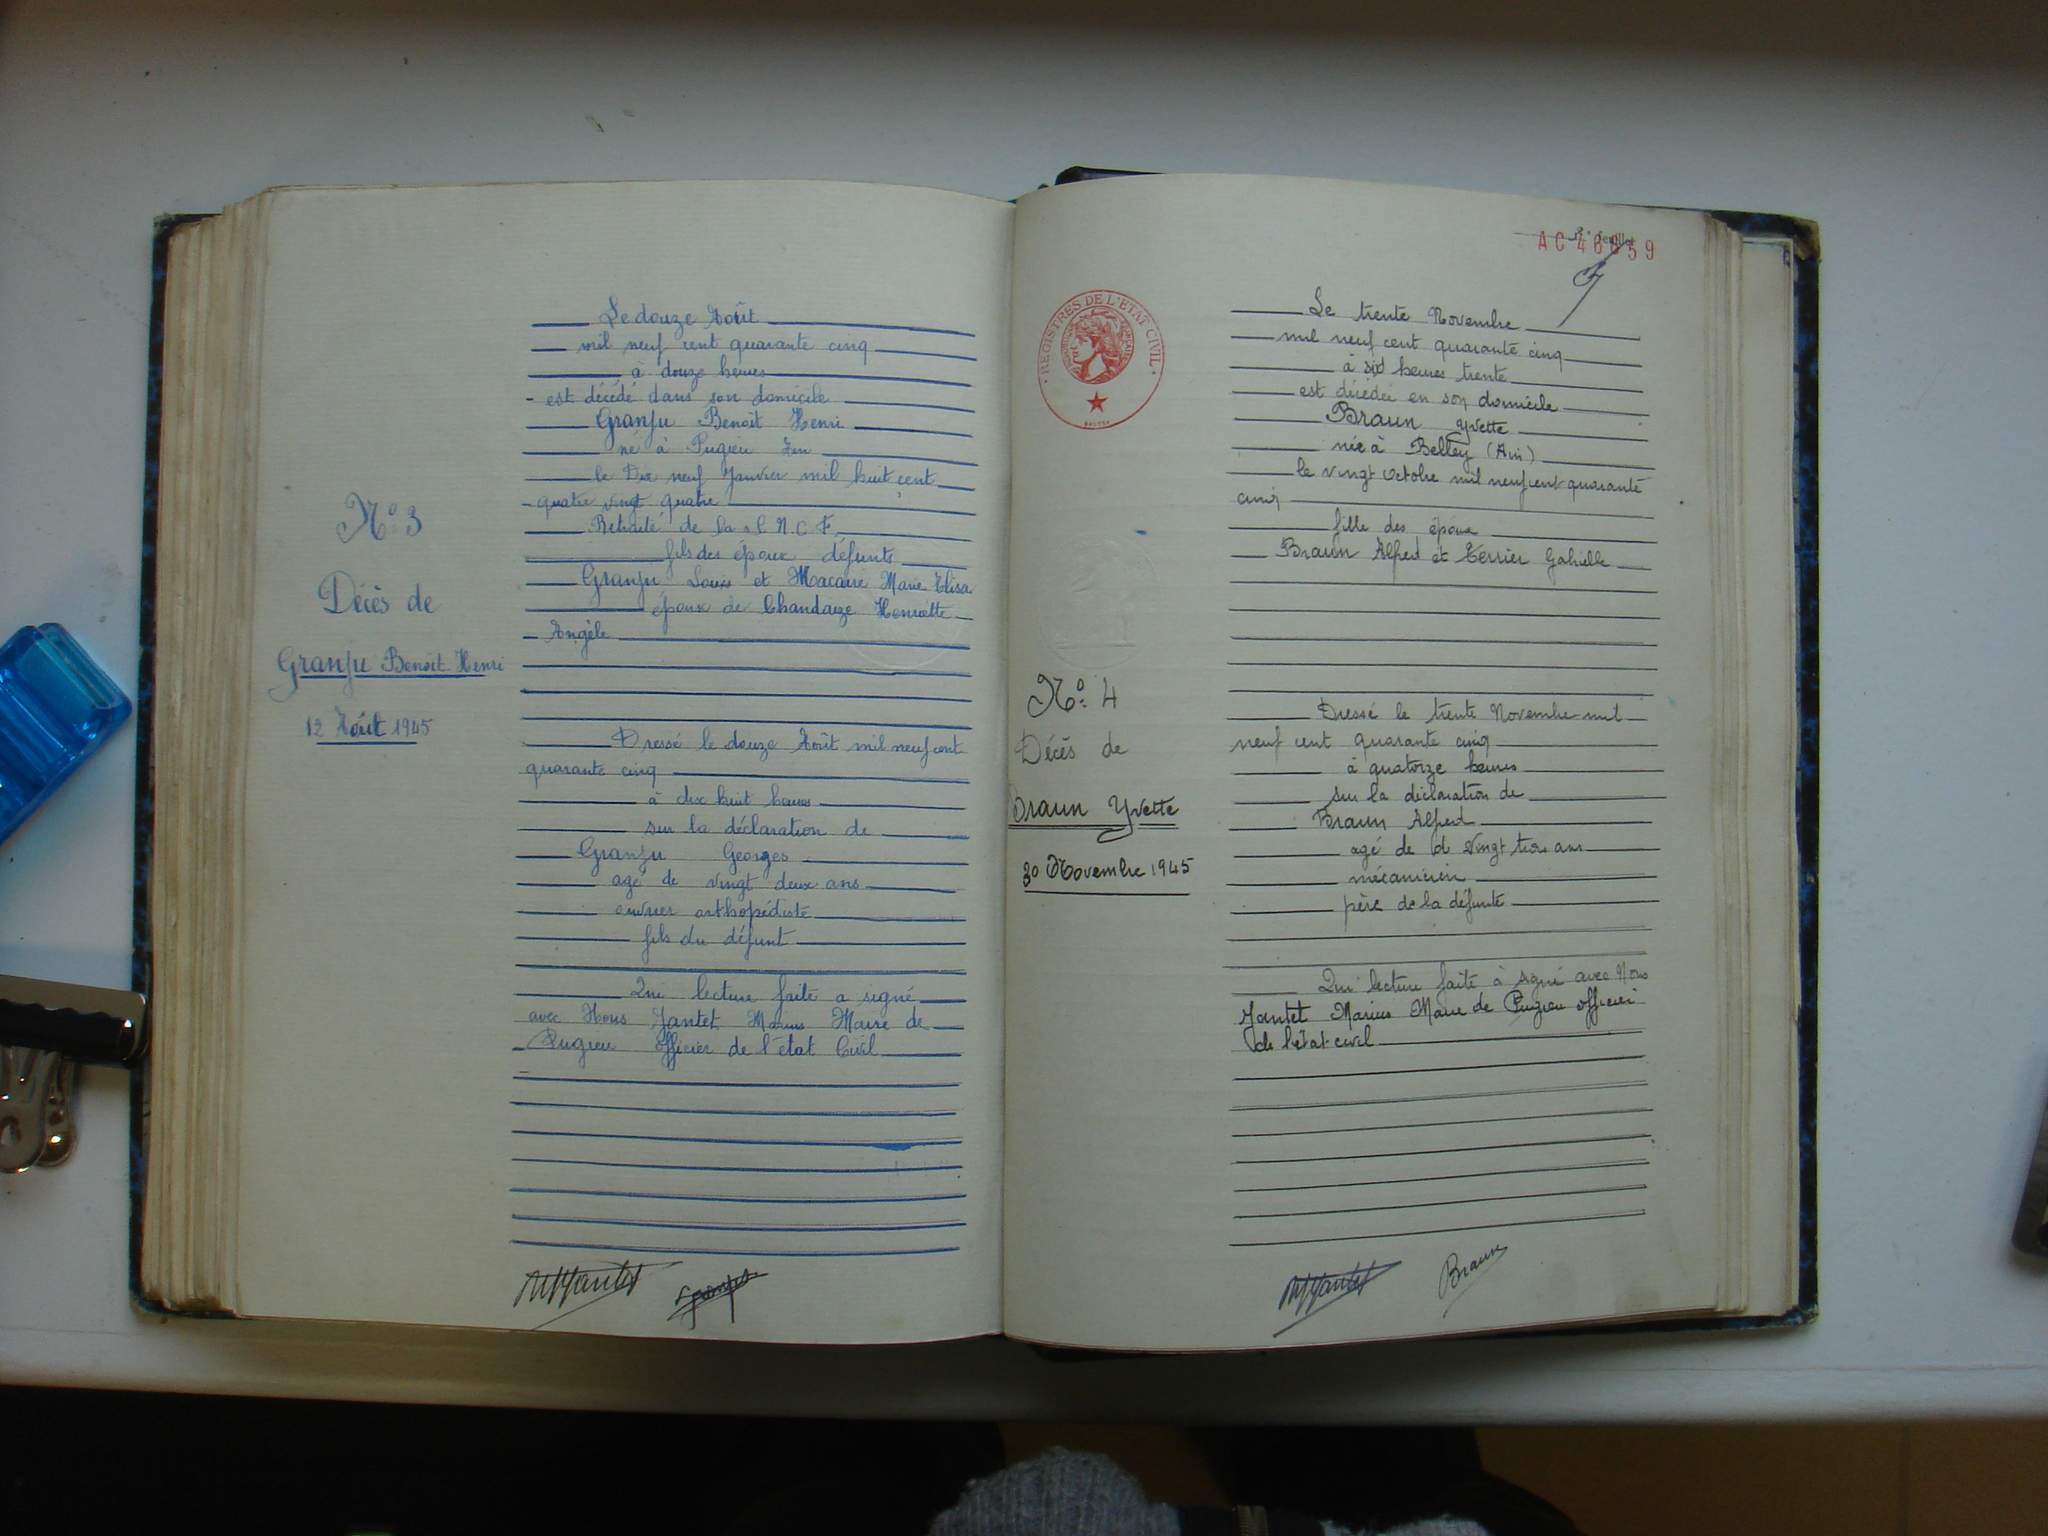 N° 3
Décès de
Granju Benoit Henri
12 Août 1945
Le douze Août
mil neuf cent quarante cinq
à douze heures
est décédé dans son domicile
Granju Benoit Henri
né à Pugieu Ain
le Dix neuf Janvier mil huit cent
quatre vingt quatre
Retraité de la S.N.C.F.
fils des époux défunts
Granju Louis et Macaire Marie Elisa
époux de Chandaize Henriette
Angèle
Dressé le douze Août mil neuf cent
quarante cinq
à dix huit heures
sur la déclaration de
Granju Georges
agé de vingt deux ans
ouvrier orthopédiste
fils du défunt
Qui lecture faite a signé
avec Nous Jantet Marius Maire de
Pugieu officier de l'état Civil
AC 46859
feuillet
REGISTRES DE L'ETAT CIVIL
N° 4
Décès de
Braun Yvette
30 Novembre 1945
Le trente Novembre
mil neuf cent quarante cinq
à six heures trente
est décédée en son domicile
Braun Yvette
née à Belley (Ain)
le vingt Octobre mil neuf cent quarante
cinq
fille des époux
Braun Alfred et Terrier Gabrielle
Dressé le trente Novembre mil
neuf cent quarante cinq
à quatorze heures
sur la déclaration de
Braun Alfred
agé de vingt trois ans
mécanicien
père de la défunte
Qui lecture faite à signé avec Nous
Jantet Marius Maire de Pugieu officier
de l'état-civil
Braun